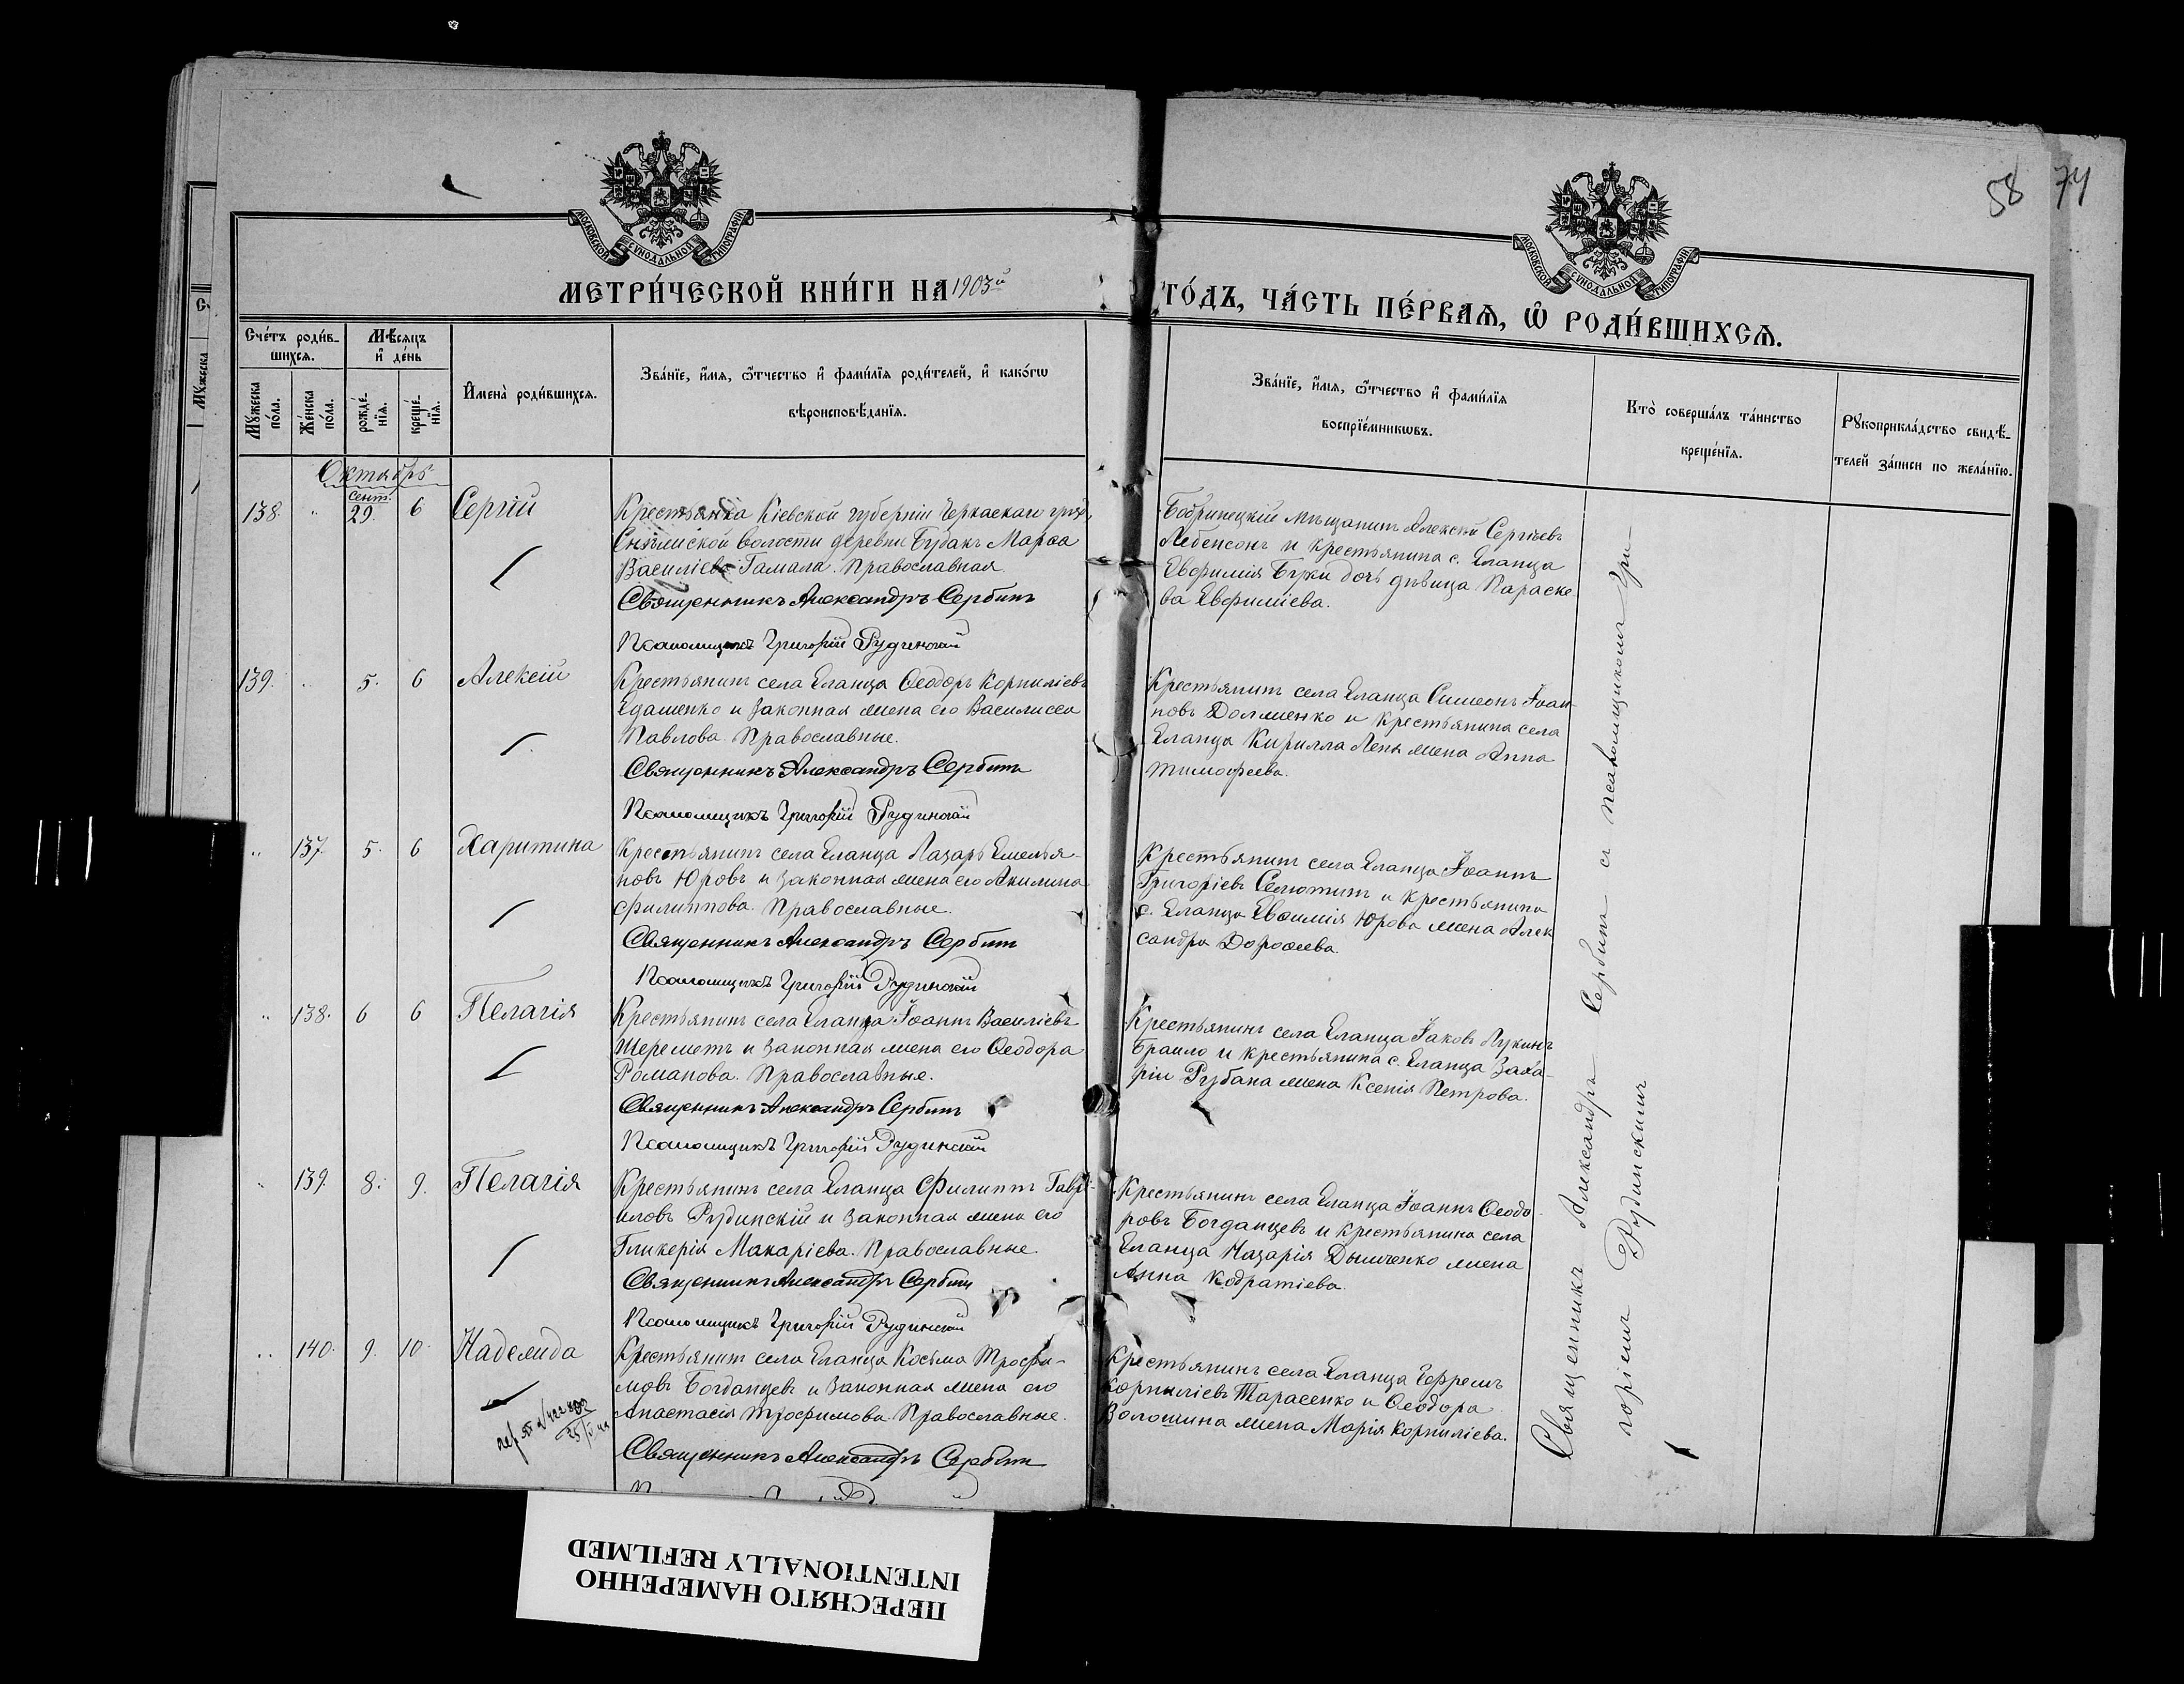 58 74
МОСКОВСКОЙ СѴНОДАЛЬНОЙ ТИПОГРАФІИ
МОСКОВСКОЙ СѴНОДАЛЬНОЙ ТИПОГРАФІИ
МЕТРИ́ЧЕСКОЙ КНИ́ГИ НА 1903й ГО́ДЪ, ЧА́СТЬ ПЕ́РВАѦ, Ѡ҆ РОДИ́ВШИХСѦ.
Сче́тъ роди́в-
шихсѧ.
Мѣ́сяцъ
и҆ де́нь
Мꙋ́жеска
по́ла.
Же́нска
по́ла.
рожде́-
нїѧ.
креще́-
нїѧ.
И҆мена̀ роди́вшихсѧ.
Зва́нїе, и҆́мѧ, ѿ́чество и҆ фами́лїѧ роди́телей, и҆ како́гѡ
вѣроисповѣ́данїѧ.
Зва́нїе, и҆́мѧ, ѿ́чество и҆ фами́лїѧ
воспрїе́мникѡвъ.
Кто̀ соверша́лъ та́инство
креще́нїѧ.
Рꙋкоприкла́дство свидѣ́-
телей за́писи по жела́нїю.
Октябрь
138. " сент. 29. 6 Сергій
Крестьянка Кіевской губерніи Черкаскаго уѣзда,
волости деревни Будакъ Марѳа
Василіева Гамала. Православная
Священникъ Александръ Сербинъ
Псаломщикъ Григорій Рудинскій
Бобринецкій мѣщанинъ Алексѣй Сергіевъ
Лебенсонъ и крестьянина с. Еланца
Евфимія Бужи дочь дѣвица Параске
ва Евфиміева.
139. " 5. 6 Алексій
Крестьянинъ села Еланца Ѳеодоръ Корниліевъ
Едаменко и законная жена его Василисса
Павлова. Православные.
Священникъ Александръ Сербинъ
Псаломщикъ Григорій Рудинскій
Крестьянинъ села Еланца Симеонъ Іоан-
новъ Долженко и крестьянина села
Еланца Кирилла Лепы жена Анна
Тимофеева.
" 137. 5. 6 Харитина
Крестьянинъ села Еланца Лазарь Емелья-
новъ Юровъ и законная жена его Акилина
Филиппова. Православные.
Священникъ Александръ Сербинъ
Псаломщикъ Григорій Рудинскій
Крестьянинъ села Еланца Іоаннъ
Григоріевъ Селютинъ и крестьянина
с. Еланца Евѳимія Юрова жена Алек
сандра Дороѳеева.
" 138. 6 6 Пелагія
Крестьянинъ села Еланца Іоаннъ Василіевъ
Шереметъ и законная жена его Ѳеодора
Романова. Православные.
Священникъ Александръ Сербинъ
Псаломщикъ Григорій Рудинскій
Крестьянинъ села Еланца Іаковъ Лукинъ
Браило и крестьянина с. Еланца Заха-
ріи Рубана жена Ксенія Петрова.
" 139. 8. 9. Пелагія
Крестьянинъ села Еланца Филиппъ Гаврі-
иловъ Рудинскій и законная жена его
Гликерія Макаріева. Православные.
Священникъ Александръ Сербинъ
Псаломщикъ Григорій Рудинскій
Крестьянинъ села Еланца Іоаннъ Ѳеодо-
ровъ Богданцевъ и крестьянина села
Еланца Назарія Дымченко жена
Анна Кодратіева.
" 140. 9. 10. Надежда
Крестьянинъ села Еланца Косьма Трофи-
мовъ Богданцевъ и законная жена его
Анастасія Трофимова. Православные.
Священникъ Александръ Сербинъ
Крестьянинъ села Еланца Ефремъ
Корниліевъ Тарасенко и Ѳеодора
Волошина жена Марія Корниліева.
Священникъ Александръ Сербинъ съ псаломщикомъ Гри-
горіемъ Рудинскимъ
ПЕРЕСНЯТО НАМЕРЕННО
INTENTIONALLY REFILMED